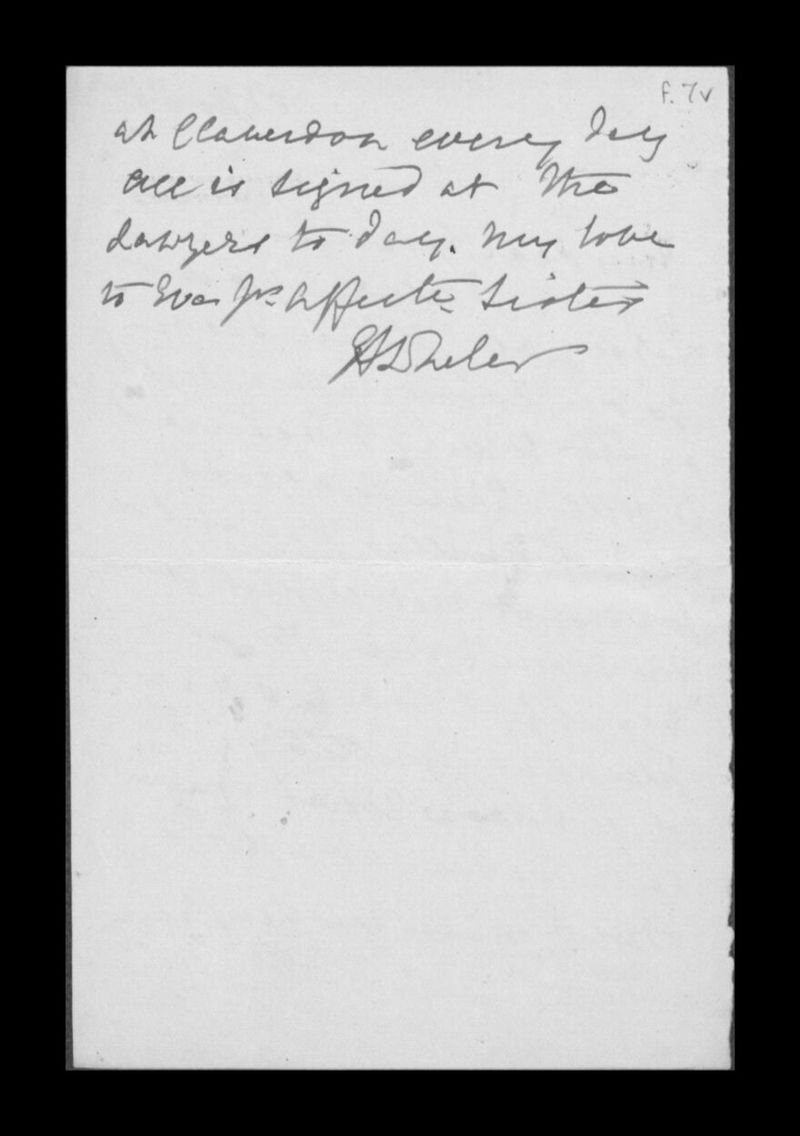 f. 7v
at Claverdon every day
All is signed at the
Lawyers to day. My love
to Eva Yr Affecte Sister
EAWheler